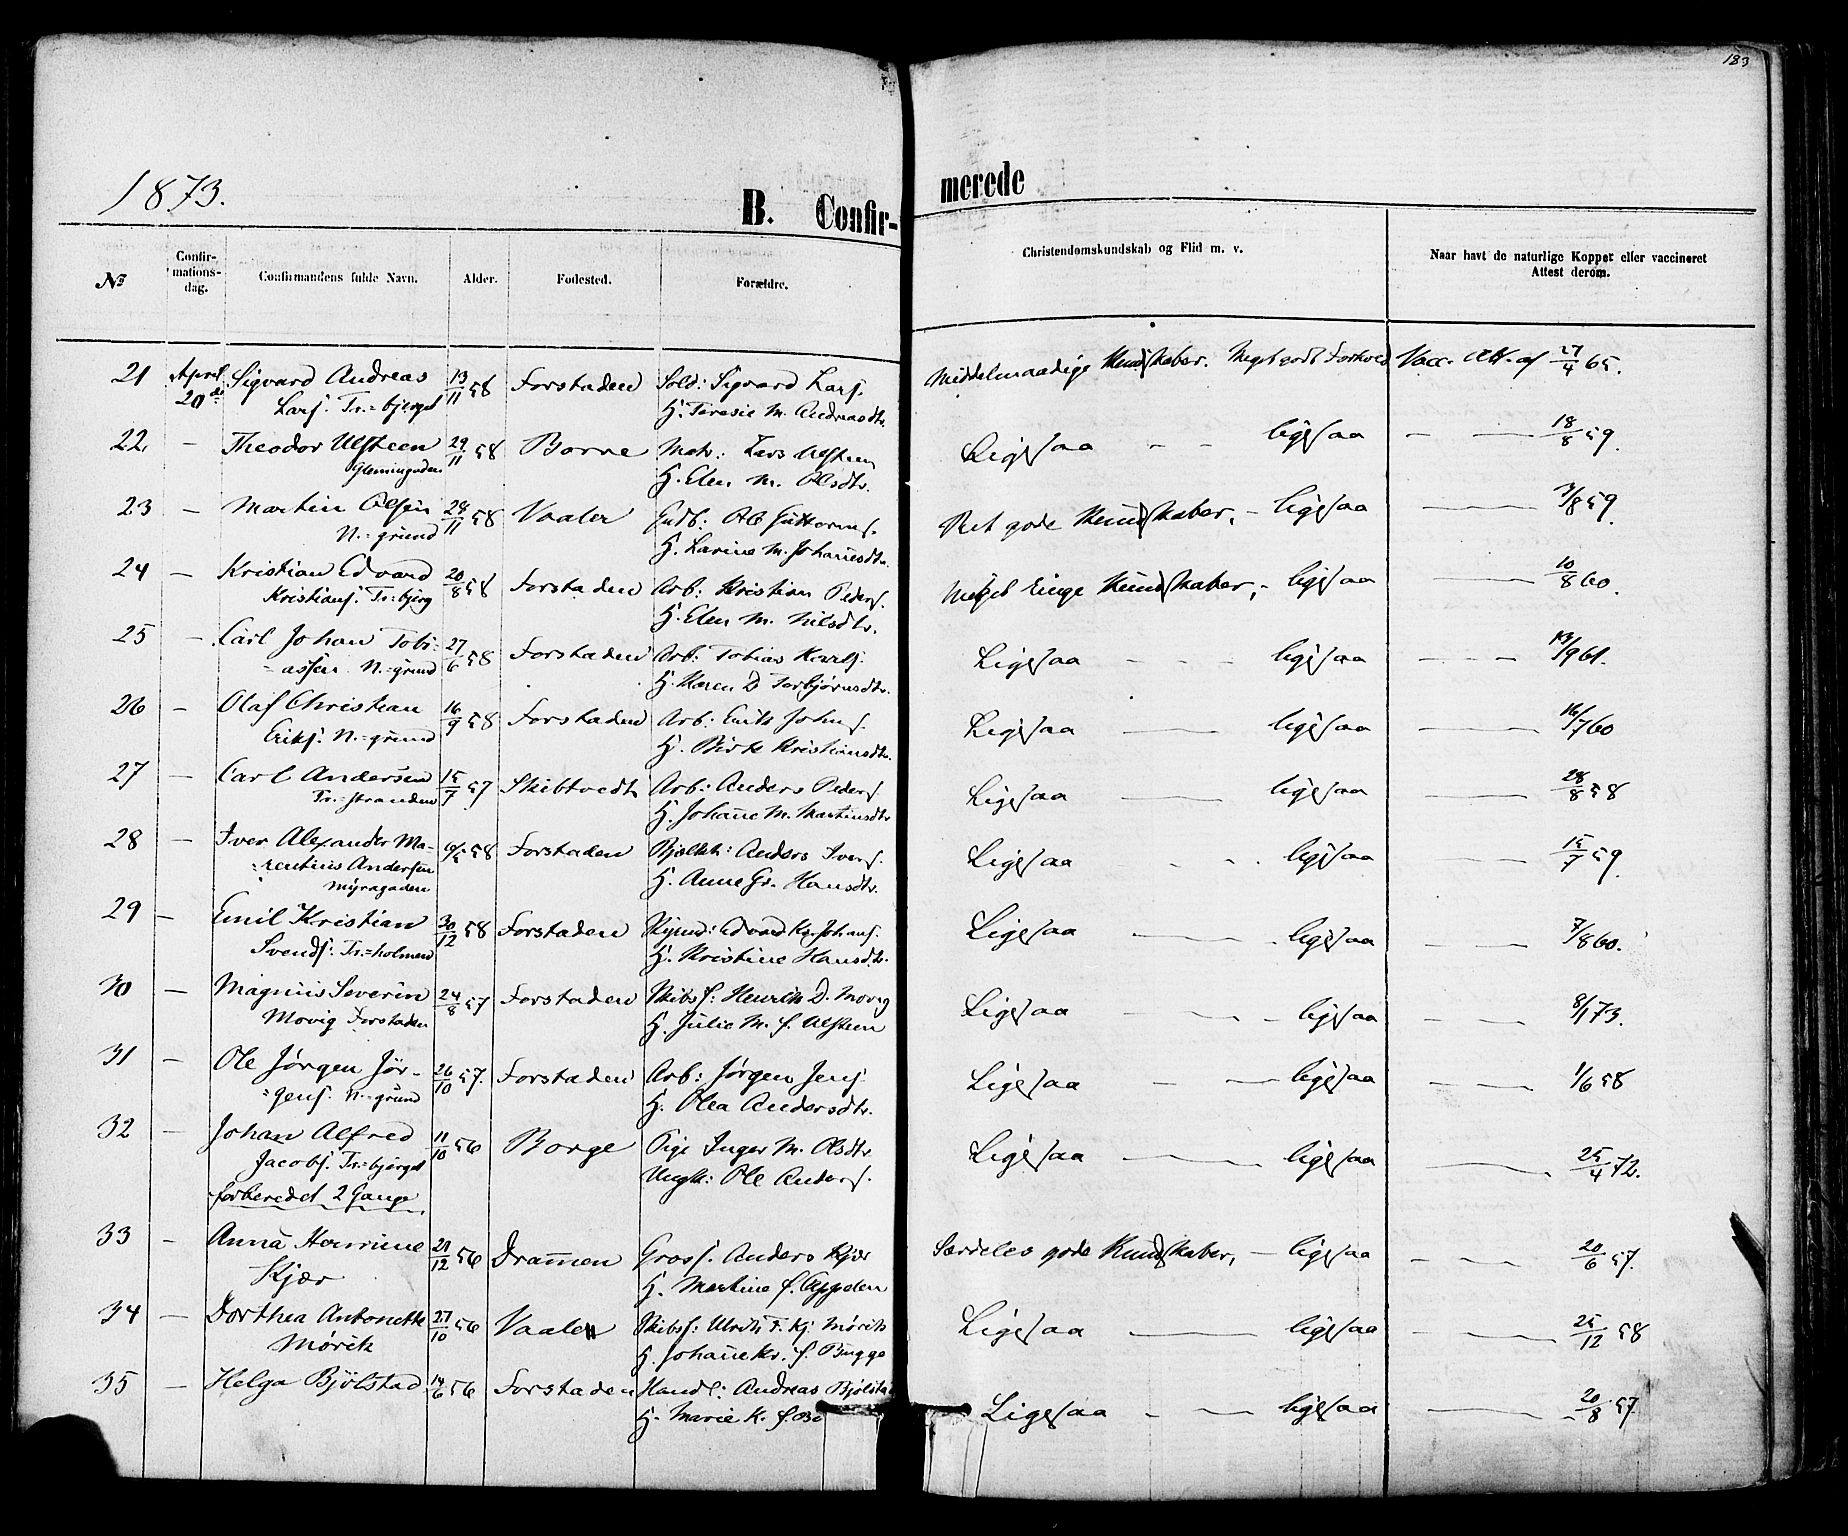 183
1873.
B. Confir-
merede
No
Confir-
mations-
dag.
Confirmandens fulde Navn.
Alder.
Fødested.
Forældre.
Christendomskundskab og Flid m. v.
Naar havt de naturlige Kopper eller vaccineret
Attest derom.
21 April 20de Sigvard Andreas 13/11 58 Forstaden Sold: Sigvard Larss. Middelmaadige Kundskaber. Meget godt Forhold Vacc. Att. af 27/4 65.
Larss. Tr.=bjerget H. Teresie M. Andreasdtr.
22 - Theodor Ulsteen 29/11 58 Borne Matr: Lars Ulsteen Ligesaa - - ligesaa - - 18/8 59.
Glemmingaden H. Elen M. Olsdtr.
23 - Martin Olsen 28/11 58 Vaaler Gudb: Ole Guttorms. Ret gode Kundskaber, - ligesaa - 3/8 59.
N.=grund H. Larine M. Johanesdtr.
24 - Kristian Edvard 20/8 58 Forstaden Arb: Kristian Peders. Meget ringe Kundskaber, - ligesaa - 10/8 60.
Kristians. Tr.=bjerg H. Elen M. Nilsdtr.
25 - Carl Johan Tobi= 27/6 58 Forstaden Arb: Tobias Ligesaa - - - ligesaa - - - 13/9 61.
=assen N.=grund H. Karen D Torbjørnsdtr.
26 - Olaf Christian 16/9 58 Forstaden Arb: Erik Johns. Ligesaa - ligesaa - - 16/7 60
Eriks. N.=grund H. Birte Kristiansdtr.
27 - Carl Andersen 15/7 57 Skibtvedt Arb: Anders Peders. Ligesaa - - ligesaa - 28/8 58
Tr.=stranden H. Johane M. Martinsdtr
28 - Iver Alexander Ma- 10/5 58 Forstaden Anders Ivers. Ligesaa - - ligesaa - 15/7 59.
=rentius Andersen H. Anne Gr. Hansdtr.
Myragaden
29 - Emil Kristian 30/12 58 Forstaden Edvard Kr. Johans. Ligesaa - - ligesaa - - 7/8 60.
Svends. Tr.=holmen H. Kristine Hansdtr.
30 - Magnus Severin 24/8 57 Forstaden Skibsf: Henrik D. Movig Ligesaa - - - ligesaa - - 8/1 73.
Movig Forstaden H. Julie M. f. Ulsteen
31 - Ole Jørgen Jør- 26/10 57. Forstaden Arb: Jørgen Jens. Ligesaa - - ligesaa - - 1/6 58
=gens. N.=grund H. Olea Andersdtr.
32 - Johan Alfred 11/10 56 Borge Pige Inger M. Olsdtr Ligesaa - - ligesaa - 25/4 72.
Jacobs. Tr.=bjerget Ungk: Ole Anders.
forberedet 2 Gange
33 - Anna Hermine 21/12 56 Dramen Gross. Anders Kjær Særdeles gode Kundskaber, - ligesaa - - 20/6 57.
Kjær H. Martine f. Appelen
34 - Dorthea Antonette 27/10 56 Vaaler Skibsf: Ulrik F. Kj. Mørik Ligesaa - ligesaa - - 25/12 58
Mørik H. Johane Kr. f. Bugge
35 - Helga Bjølstad 14/6 56 Forstaden Handl: Andreas Bjølsta Ligesaa - - ligesaa - 20/8 57
H. Marie K. f.